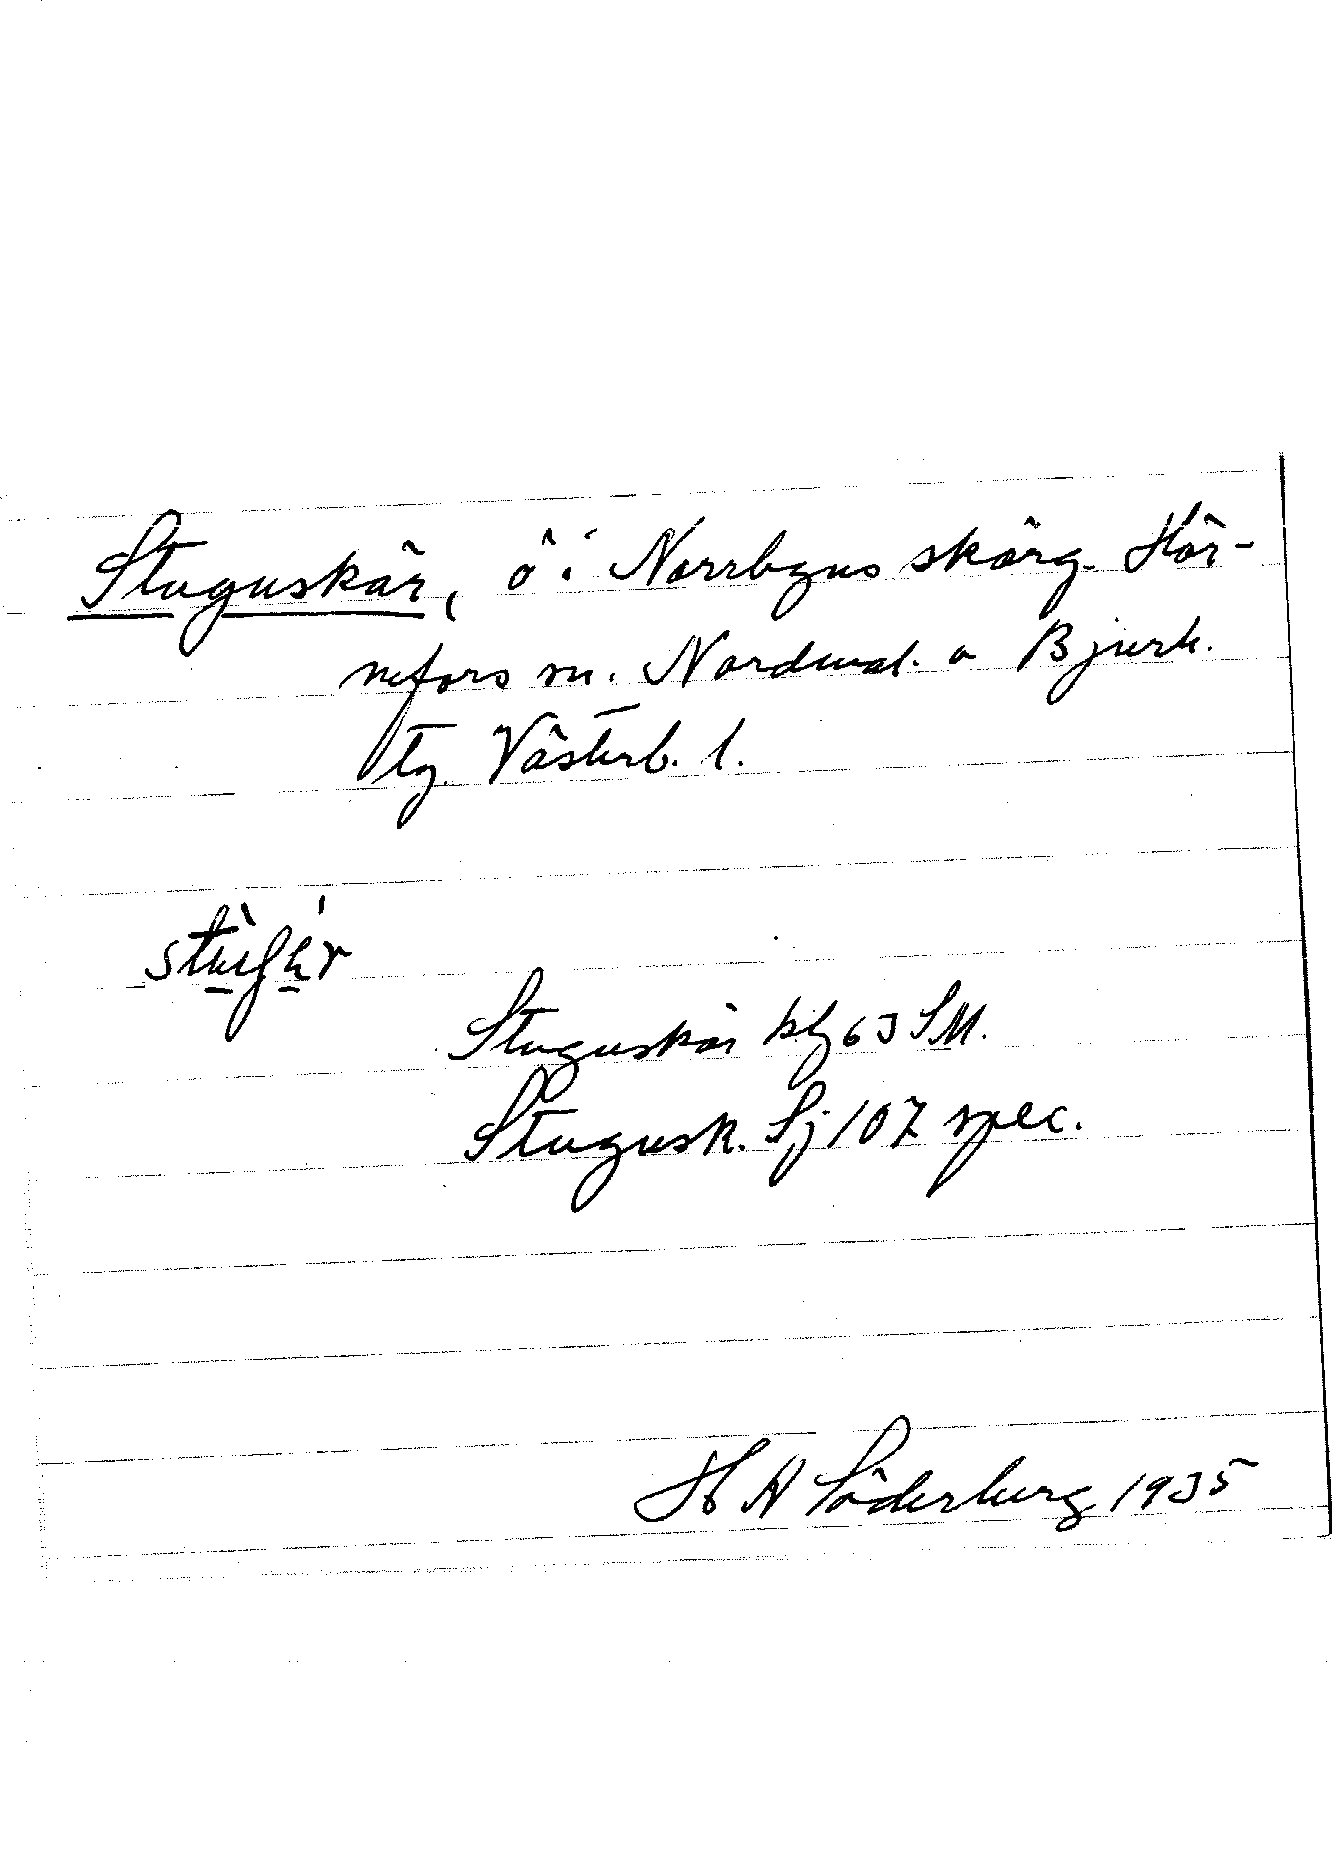 Stuguskär, ö i Norrbyns skärg. Hör-
nefors sn. Nordmal. o Bjurh.
tg. Västerb. l.
Stuguskär blg 63 SM.
Stugusk. Sj 107 spec.
H A Söderberg 1935